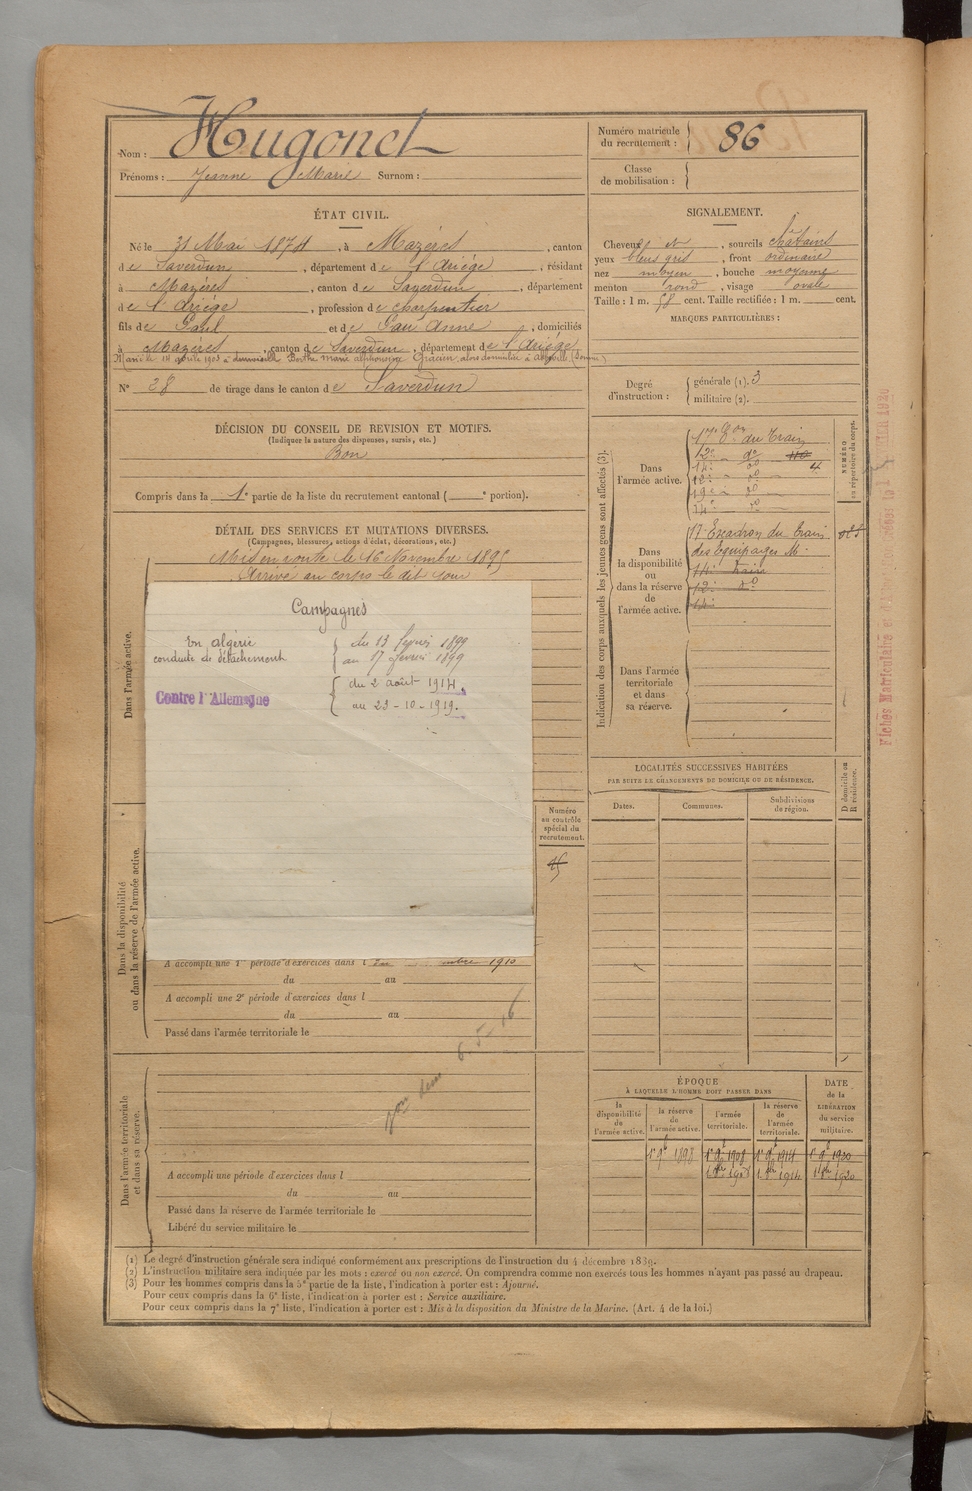 Nom : Hugonet
Prénoms : Jeanne Marie Surnom :
Numéro matricule du recrutement : 86
Classe de mobilisation :
ÉTAT CIVIL.
Né le 31 Mai 1874, à Mazères, canton
de Saverdun, département de l'Ariège, résidant
à Mazères, canton de Saverdun, département
de l'Ariège, profession de charpentier
fils de Paul et de Gau Anne, domiciliés
à Mazères, canton de Saverdun, département de l'Ariège
Marié le 18 1903 à demoiselle Berthe Marie Alphonsine Gracien, alors domiciliée à (Somme)
N° 28 de tirage dans le canton de Saverdun
DÉCISION DU CONSEIL DE REVISION ET MOTIFS.
(Indiquer la nature des dispenses, sursis, etc.)
Bon
Compris dans la 1e partie de la liste du recrutement cantonal ( e portion).
DÉTAIL DES SERVICES ET MUTATIONS DIVERSES.
(Campagnes, blessures, actions d'éclat, décorations, etc.)
Mis en route le 16 Novembre 1895
Arrivé au corps le dit jour
Dans l'armée active.
Campagnes
En algérie
conduite de détachement
du 13 février 1899
au 17 février 1899
Contre l'Allemagne
du 2 août 1914.
au 23-10-1919.
Numéro au contrôle spécial du recrutement.
Dans la disponibilité ou dans la réserve de l'armée active.
A accompli une 1re période d'exercices dans l mbre 1910
du au
A accompli une 2e période d'exercices dans l
du au
Passé dans l'armée territoriale le
6. 5. 16
Dans l'armée territoriale et dans sa réserve.
A accompli une période d'exercices dans l
du au
Passé dans la réserve de l'armée territoriale le
Libéré du service militaire le
SIGNALEMENT.
Cheveux et, sourcils châtains
yeux bleus gris, front ordinaire
nez moyen, bouche moyenne
menton rond, visage ovale
Taille : 1 m. 58 cent. Taille rectifiée : 1 m. cent.
MARQUES PARTICULIÈRES :
Degré d'instruction : générale (1). 3
militaire (2).
Indication des corps auxquels les jeunes gens sont affectés (3).
NUMÉRO au répertoire du corps.
Dans l'armée active.
17e Eon du Train
12e do
14e do
12e do
19e do
14e do
Dans la disponibilité ou dans la réserve de l'armée active.
17e Escadron du train
des Équipages M.
14e train
12e do
14e
Dans l'armée territoriale et dans sa réserve.
LOCALITÉS SUCCESSIVES HABITÉES
PAR SUITE DE CHANGEMENTS DE DOMICILE OU DE RÉSIDENCE.
Dates.
Communes.
Subdivisions de région.
D domicile ou R résidence.
ÉPOQUE
À LAQUELLE L'HOMME DOIT PASSER DANS
la disponibilité de l'armée active.
la réserve de l'armée active.
l'armée territoriale.
la réserve de l'armée territoriale.
DATE de la LIBÉRATION du service militaire.
1er 9b 1898
1er 8b 1908
1er 8b 1914
1er 8b 1920
1er 8bre 1908
1er 8bre 1914
1er 8bre 1920
(1) Le degré d'instruction générale sera indiqué conformément aux prescriptions de l'instruction du 4 décembre 1889.
(2) L'instruction militaire sera indiquée par les mots : exercé ou non exercé. On comprendra comme non exercés tous les hommes n'ayant pas passé au drapeau.
(3) Pour les hommes compris dans la 5e partie de la liste, l'indication à porter est : Ajourné.
Pour ceux compris dans la 6e liste, l'indication à porter est : Service auxiliaire.
Pour ceux compris dans la 7e liste, l'indication à porter est : Mis à la disposition du Ministre de la Marine. (Art. 4 de la loi.)